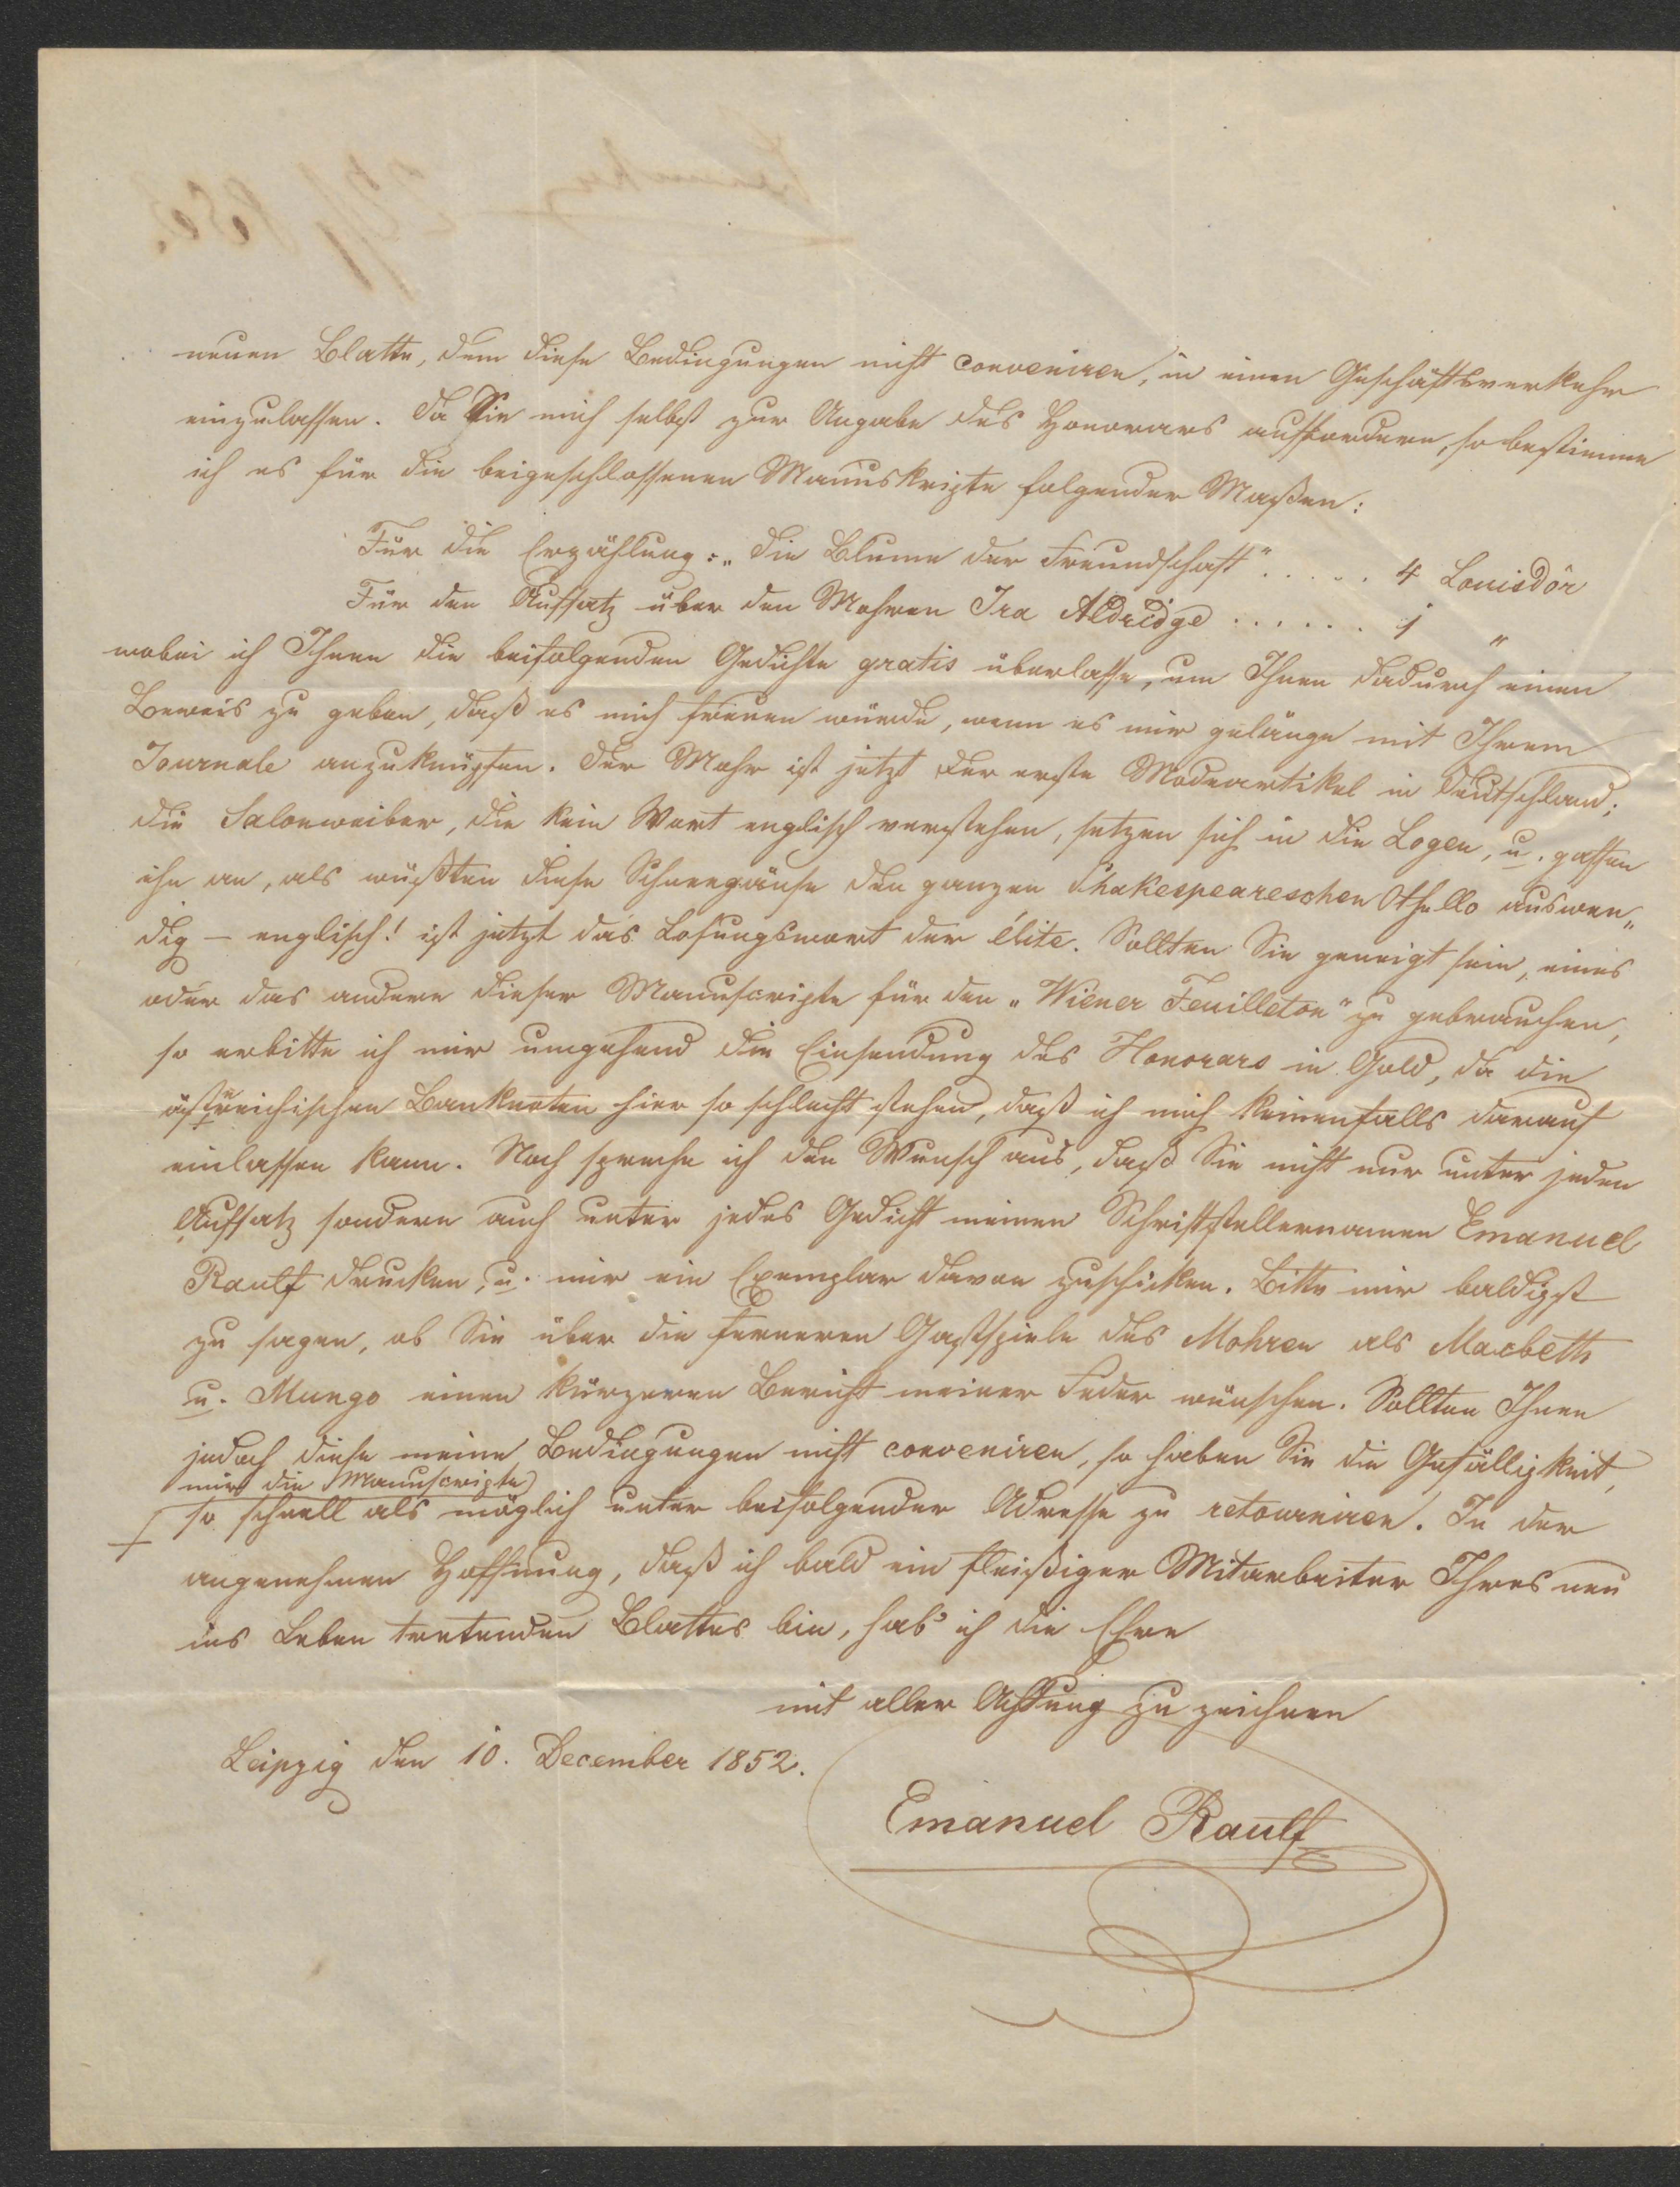 neuen Blatte, dem diese Bedingungen nicht conveniren, in einen Geschäftsverkehr
einzulassen. Da Sie mich selbst zur Angabe des Honorars auffordern, so bestimme
ich es für die beigeschlossenen Manuskripte folgender Maßen:
Für die Erzählung: „Die Blume der Freundschaft" ...... 4 Louisdôr
Für den Aufsatz über den Mohren Ira Aldridge ...... 1 "
wobei ich Ihnen die beifolgenden Gedichte gratis überlasse, um Ihnen dadurch einen
Beweis zu geben, daß es mich freuen würde, wenn es mir gelänge mit Ihrem
Journale anzuknüpfen. Der Mohr ist jetzt der erste Modeartikel in Deutschland;
die Salonweiber, die kein Wort englisch verstehen, setzen sich in die Logen, u. gaffen
ihn an, als wüßten diese Schneegänse den ganzen Shakespeareschen Othello auswen„
dig – englisch! ist jetzt das Losungswort der élite. Sollten Sie geneigt sein, eines
oder das andere dieser Manuscripte für den „Wiener Feuilleton" zu gebrauchen,
so erbitte ich mir umgehend die Einsendung des Honorars in Gold, da die
östreichischen Banknoten hier so schlecht stehen, daß ich mich keinenfalls darauf
einlassen kann. Noch spreche ich den Wunsch aus, daß Sie nicht nur unter jeden
Aufsatz sondern auch unter jedes Gedicht meinen Schriftstellernamen Emanuel
Raulf drucken, u. mir ein Exemplar davon zuschicken. Bitte mir baldigst
zu sagen, ob Sie über die ferneren Gastspiele des Mohren als Macbeth
u. Mungo einen kürzeren Bericht meiner Feder wünschen. Sollten Ihnen
jedoch diese meine Bedingungen nicht conveniren, so haben Sie die Gefälligkeit,
mir die Manuscripte
so schnell als möglich unter beifolgender Adresse zu retourniren. In der
angenehmen Hoffnung, daß ich bald ein fleißiger Mitarbeiter Ihres neu
ins Leben tretenden Blattes bin, hab' ich die Ehre
mit aller Achtung zu zeichnen
Leipzig den 10. December 1852.
Emanuel Raulf